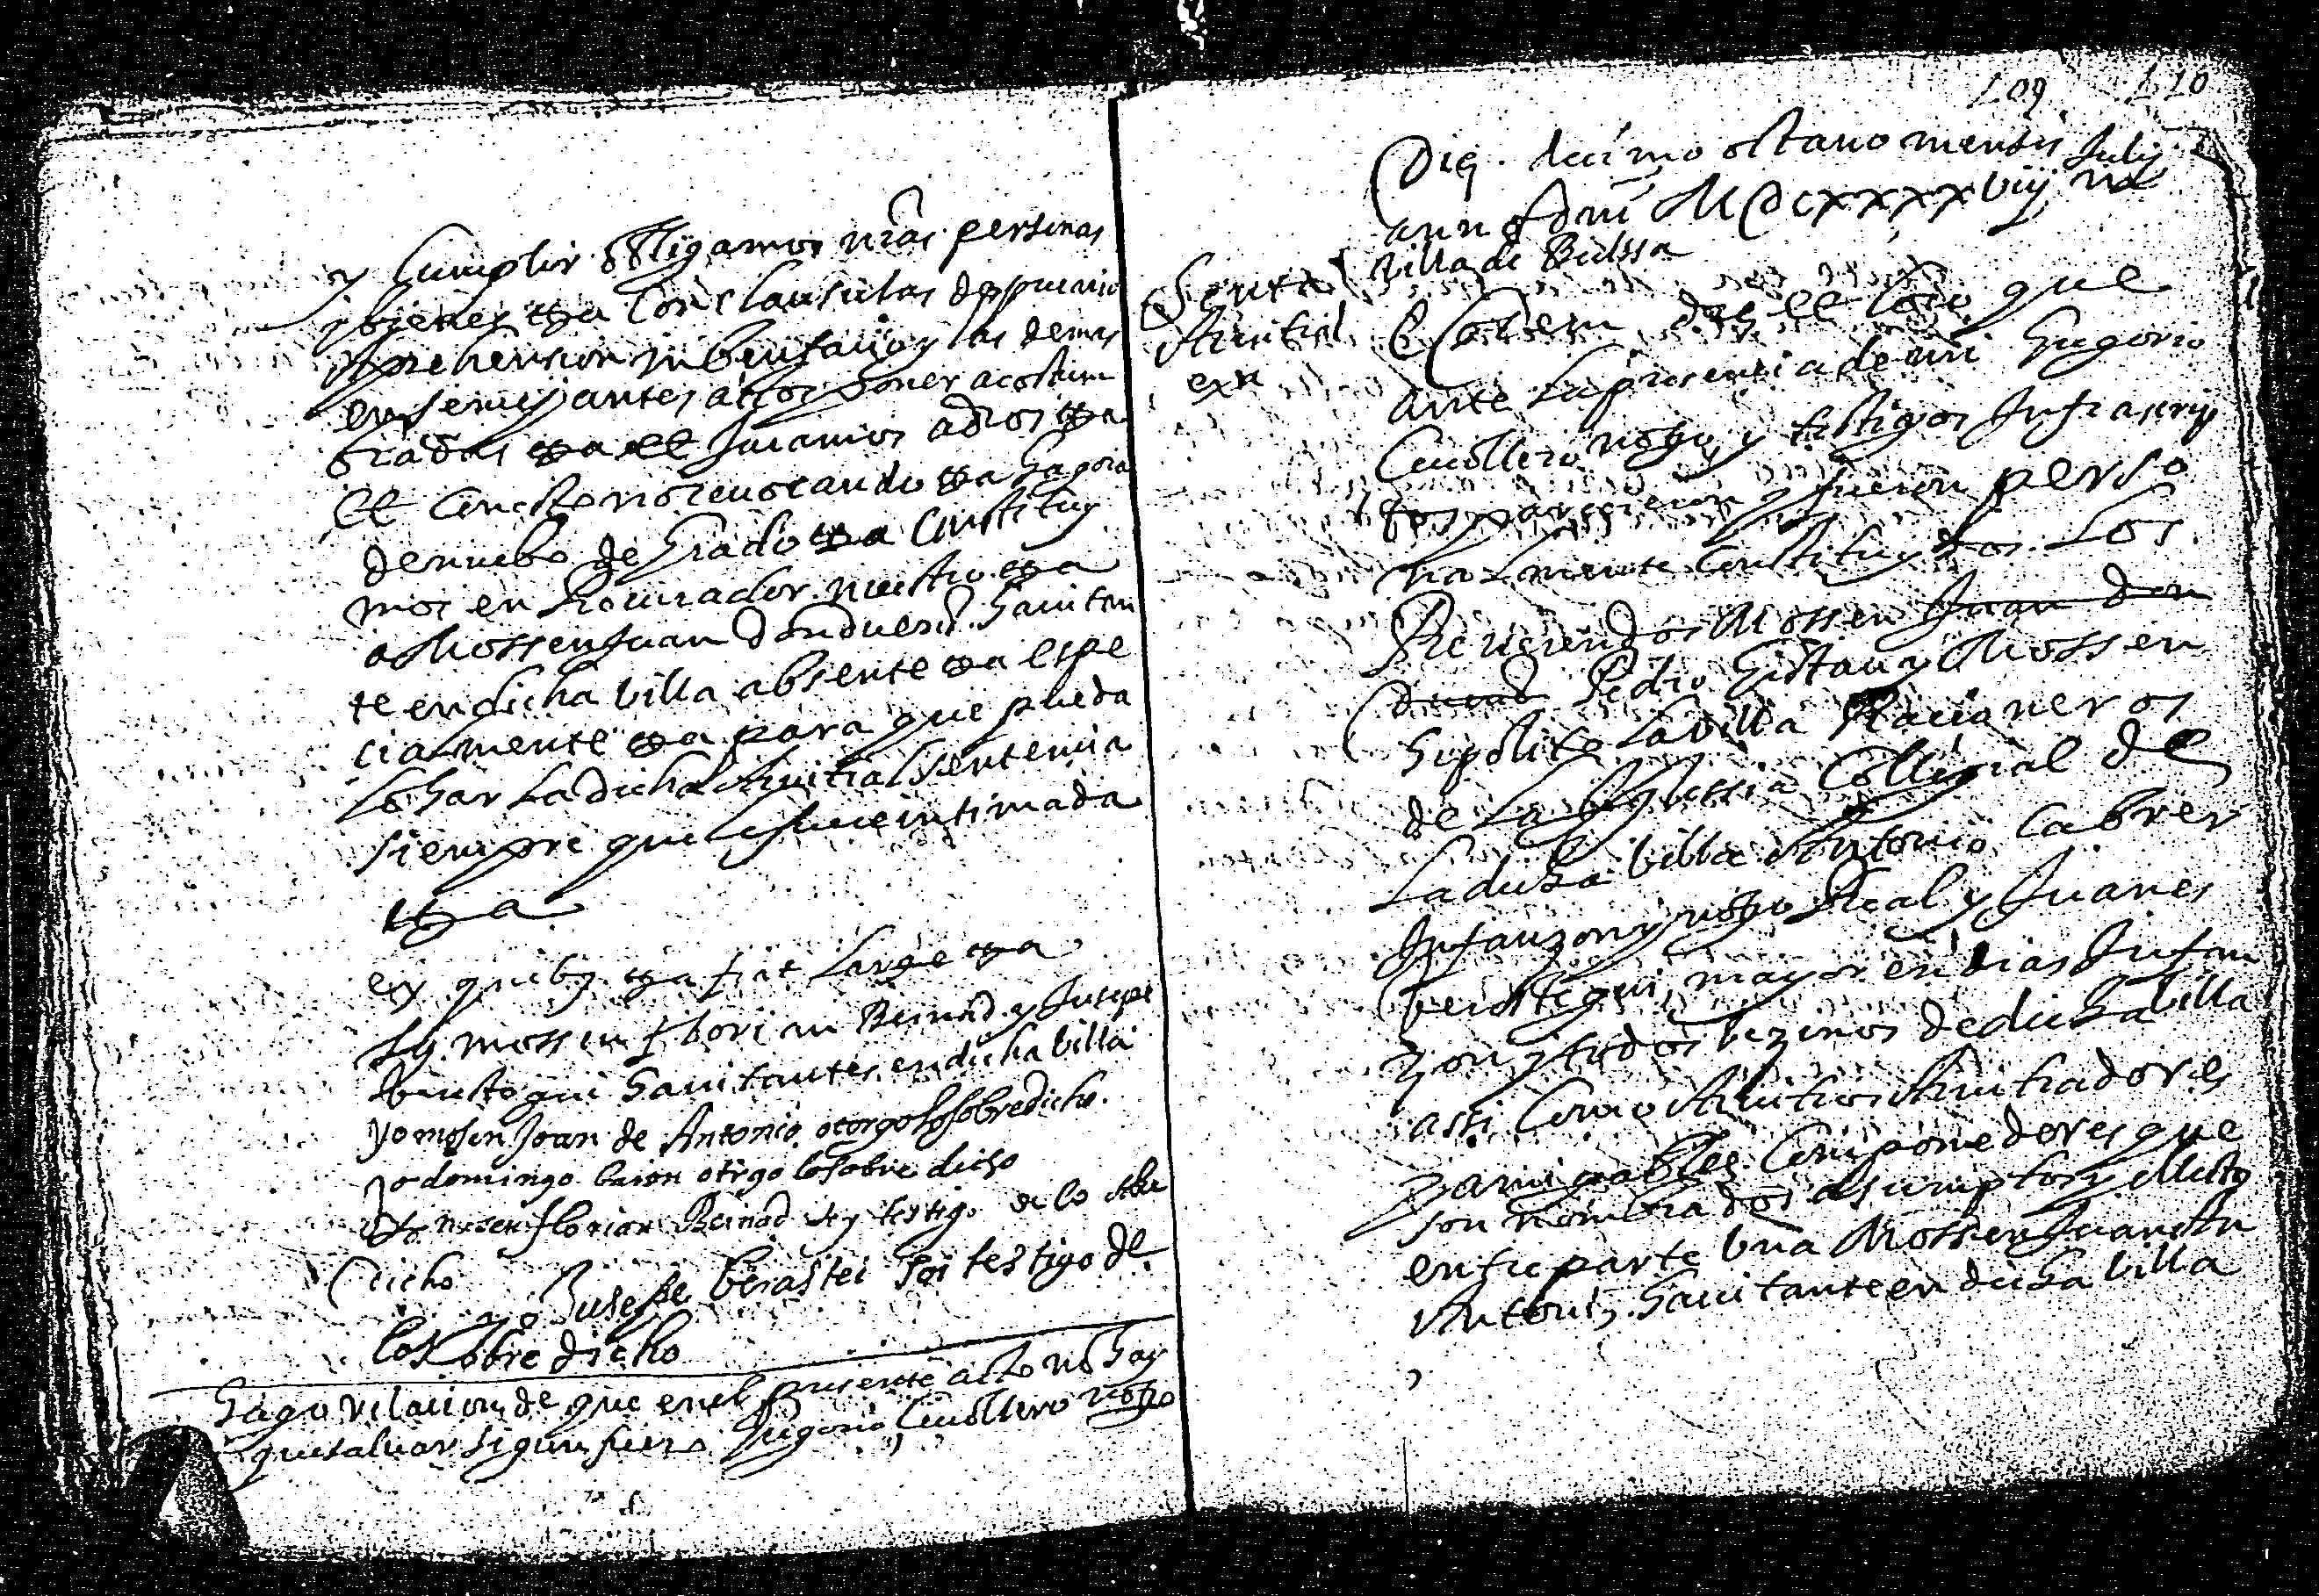 y cumplir obligamos nrãs personas
y bienes etta con clausulas de precario
aprehension inbentario y las demas
en semejantes actos poner acostum
bradas etta et juramos a dios etta
et con esto no reuocando etta hagora
de nuebo de grado etta constituy
mos en procurador nuestro etta
a Mossen Juan Donduerd hauitan
te en dicha villa absente etta espe
cialmente etta para que pueda
lohar la dicha Arbitral sentencia
siempre que le fuere intimada
etta
ex quibus etta fiat large etta
ts. mossen florian Beinad y Jusepe
berastegui hauitantes en dicha billa
yo mosen Joan de Antonio otorgo lo sobredicho
yo domingo otrgo lo sobre dicho
yo mosen florian Beinad soy testigo de lo sobre
dicho
yo Jusepe berastei soi testigo de
lo sobre dicho
hago relacion de que en el presente acto no hay
que saluar segun fuero Gregorio Cauollero notro
109 110
Die decimo octauo mensis Julij
anno dm̄i MDCXXXXviij na
billa de Bielssa
Sentã
Arbitral
exa
Eadem die et loco que
ante la presencia de mi Gregorio
Cauollero notro y testigos infrascrip
tos parecieron y fueron perso
nalmente constituydos Los
Reuerendos Mossen Juan don
duerd Pedro Gistau y Mossen
hipolito Lavilla Racioneros
de La Yglessia Collegial de
La dicha billa Antonio Cabrer
Infanzon y notro Real y Juanes
berastegui, mayor en dias Infan
zon y todos bezinos de dicha billa
assi como Arbitros Arbitradores
y amigables componedores que
son nombrados asumptos y electos
en su parte vna Mossen Juan de
Antoni, hauitante en dicha billa